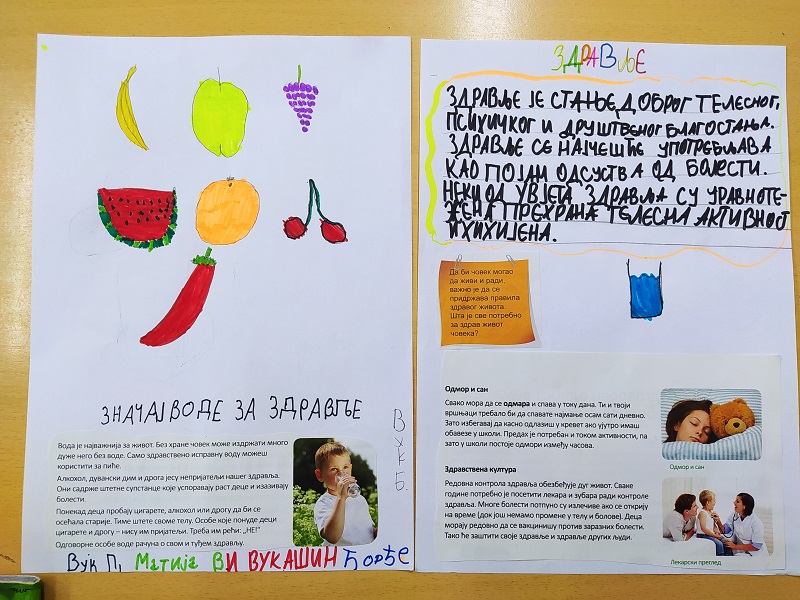 ЗНАЧАЈ ВОДЕ ЗА ЗДРАВЉЕ
Вода је најважнија за живот. Без хране човек може издржати много
дуже него без воде. Само здравствено исправну воду можеш
користити за пиће.
Алкохол, дувански дим и дрога јесу непријатељи нашег здравља.
Они садрже штетне супстанце које успоравају раст деце и изазивају
болести.
Понекад деца пробају цигарете, алкохол или дрогу да би се
осећала старије. Тиме штете своме телу. Особе које понуде деци
цигарете и дрогу – нису им пријатељи. Треба им рећи: „НЕ!"
Одговорне особе воде рачуна о свом и туђем здрављу.
Вук П, Матија В И ВУКАШИН Ђорђе
ВУК Б
ЗДРАВЉЕ
ЗДРАВЉЕ ЈЕ СТАЊЕ ДОБРОГ ТЕЛЕСНОГ,
ПСИХИЧКОГ И ДРУШТВЕНОГ БЛАГОСТАЊА.
ЗДРАВЉЕ СЕ НАЈЧЕШЋЕ УПОТРЕБЉАВА
КАО ПОЈАМ ОДСУСТВА ОД БОЛЕСТИ.
НЕКИ ОД УВЈЕТА ЗДРАВЉА СУ УРАВНОТЕ-
ЖЕНА ПРЕХРАНА ТЕЛЕСНА АКТИВНОСТ
И ХИХИЈЕНА.
Да би човек могао
да живи и ради,
важно је да се
придржава правила
здравог живота.
Шта је све потребно
за здрав живот
човека?
Одмор и сан
Свако мора да се одмара и спава у току дана. Ти и твоји
вршњаци требало би да спавате најмање осам сати дневно.
Зато избегавај да касно одлазиш у кревет ако ујутро имаш
обавезе у школи. Предах је потребан и током активности, па
зато у школи постоје одмори између часова.
Одмор и сан
Здравствена култура
Редовна контрола здравља обезбеђује дуг живот. Сваке
године потребно је посетити лекара и зубара ради контроле
здравља. Многе болести потпуно су излечиве ако се открију
на време (док још немамо промене у телу и болове). Деца
морају редовно да се вакцинишу против заразних болести.
Тако ће заштити своје здравље и здравље других људи.
Лекарски преглед